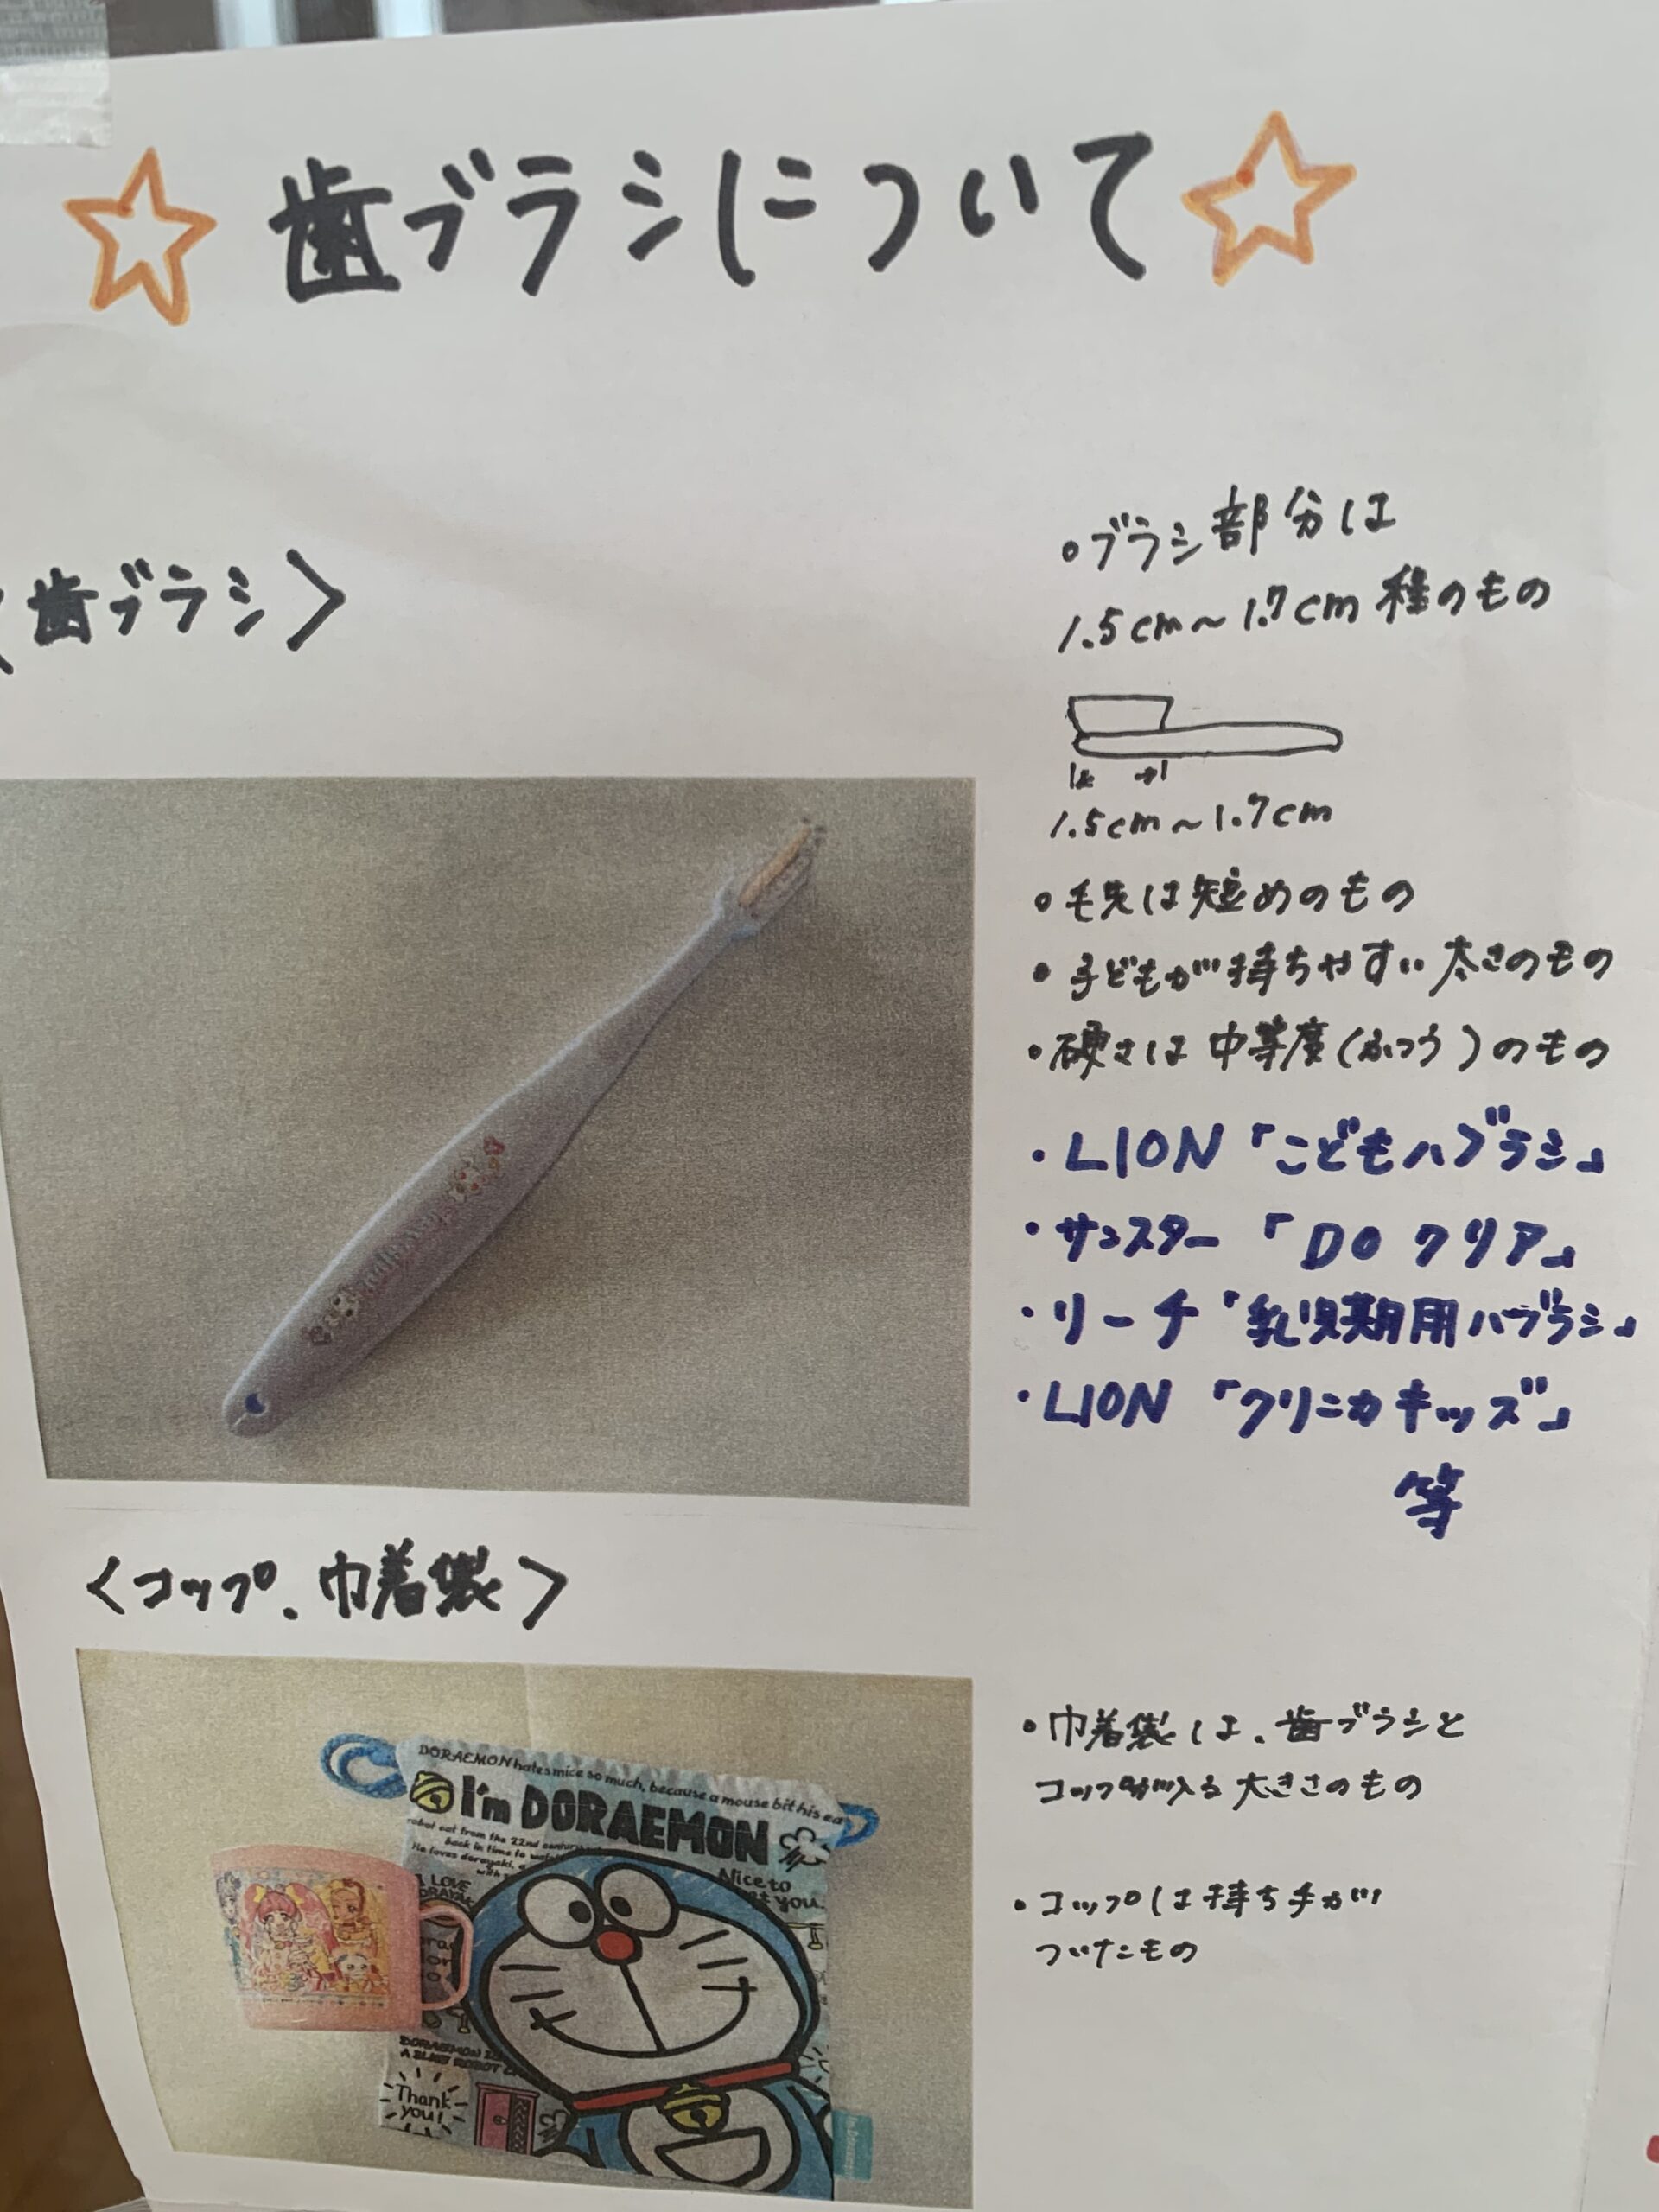 ☆歯ブラシについて☆
〈歯ブラシ〉
・ブラシ部分は
1.5cm～1.7cm程のもの
1.5cm～1.7cm
・毛先は短めのもの
・子どもが持ちやすい太さのもの
・硬さは中等度(ふつう)のもの
・LION「こどもハブラシ」
・サンスター「DOクリア」
・リーチ「乳児期用ハブラシ」
・LION「クリニカキッズ」
等
〈コップ、巾着袋〉
・巾着袋は、歯ブラシと
コップが入る大きさのもの
・コップは持ち手が
ついたもの
DORAEMON hates mice so much, because a mouse bit his ea
I'm DORAEMON
robot cat from the 22nd century
back in time to
He loves dorayaki,
with
Nice to
t you.
I LOVE
DORAYAK
DORAEMON IS
A BLUE ROBOT C
Thank
you!